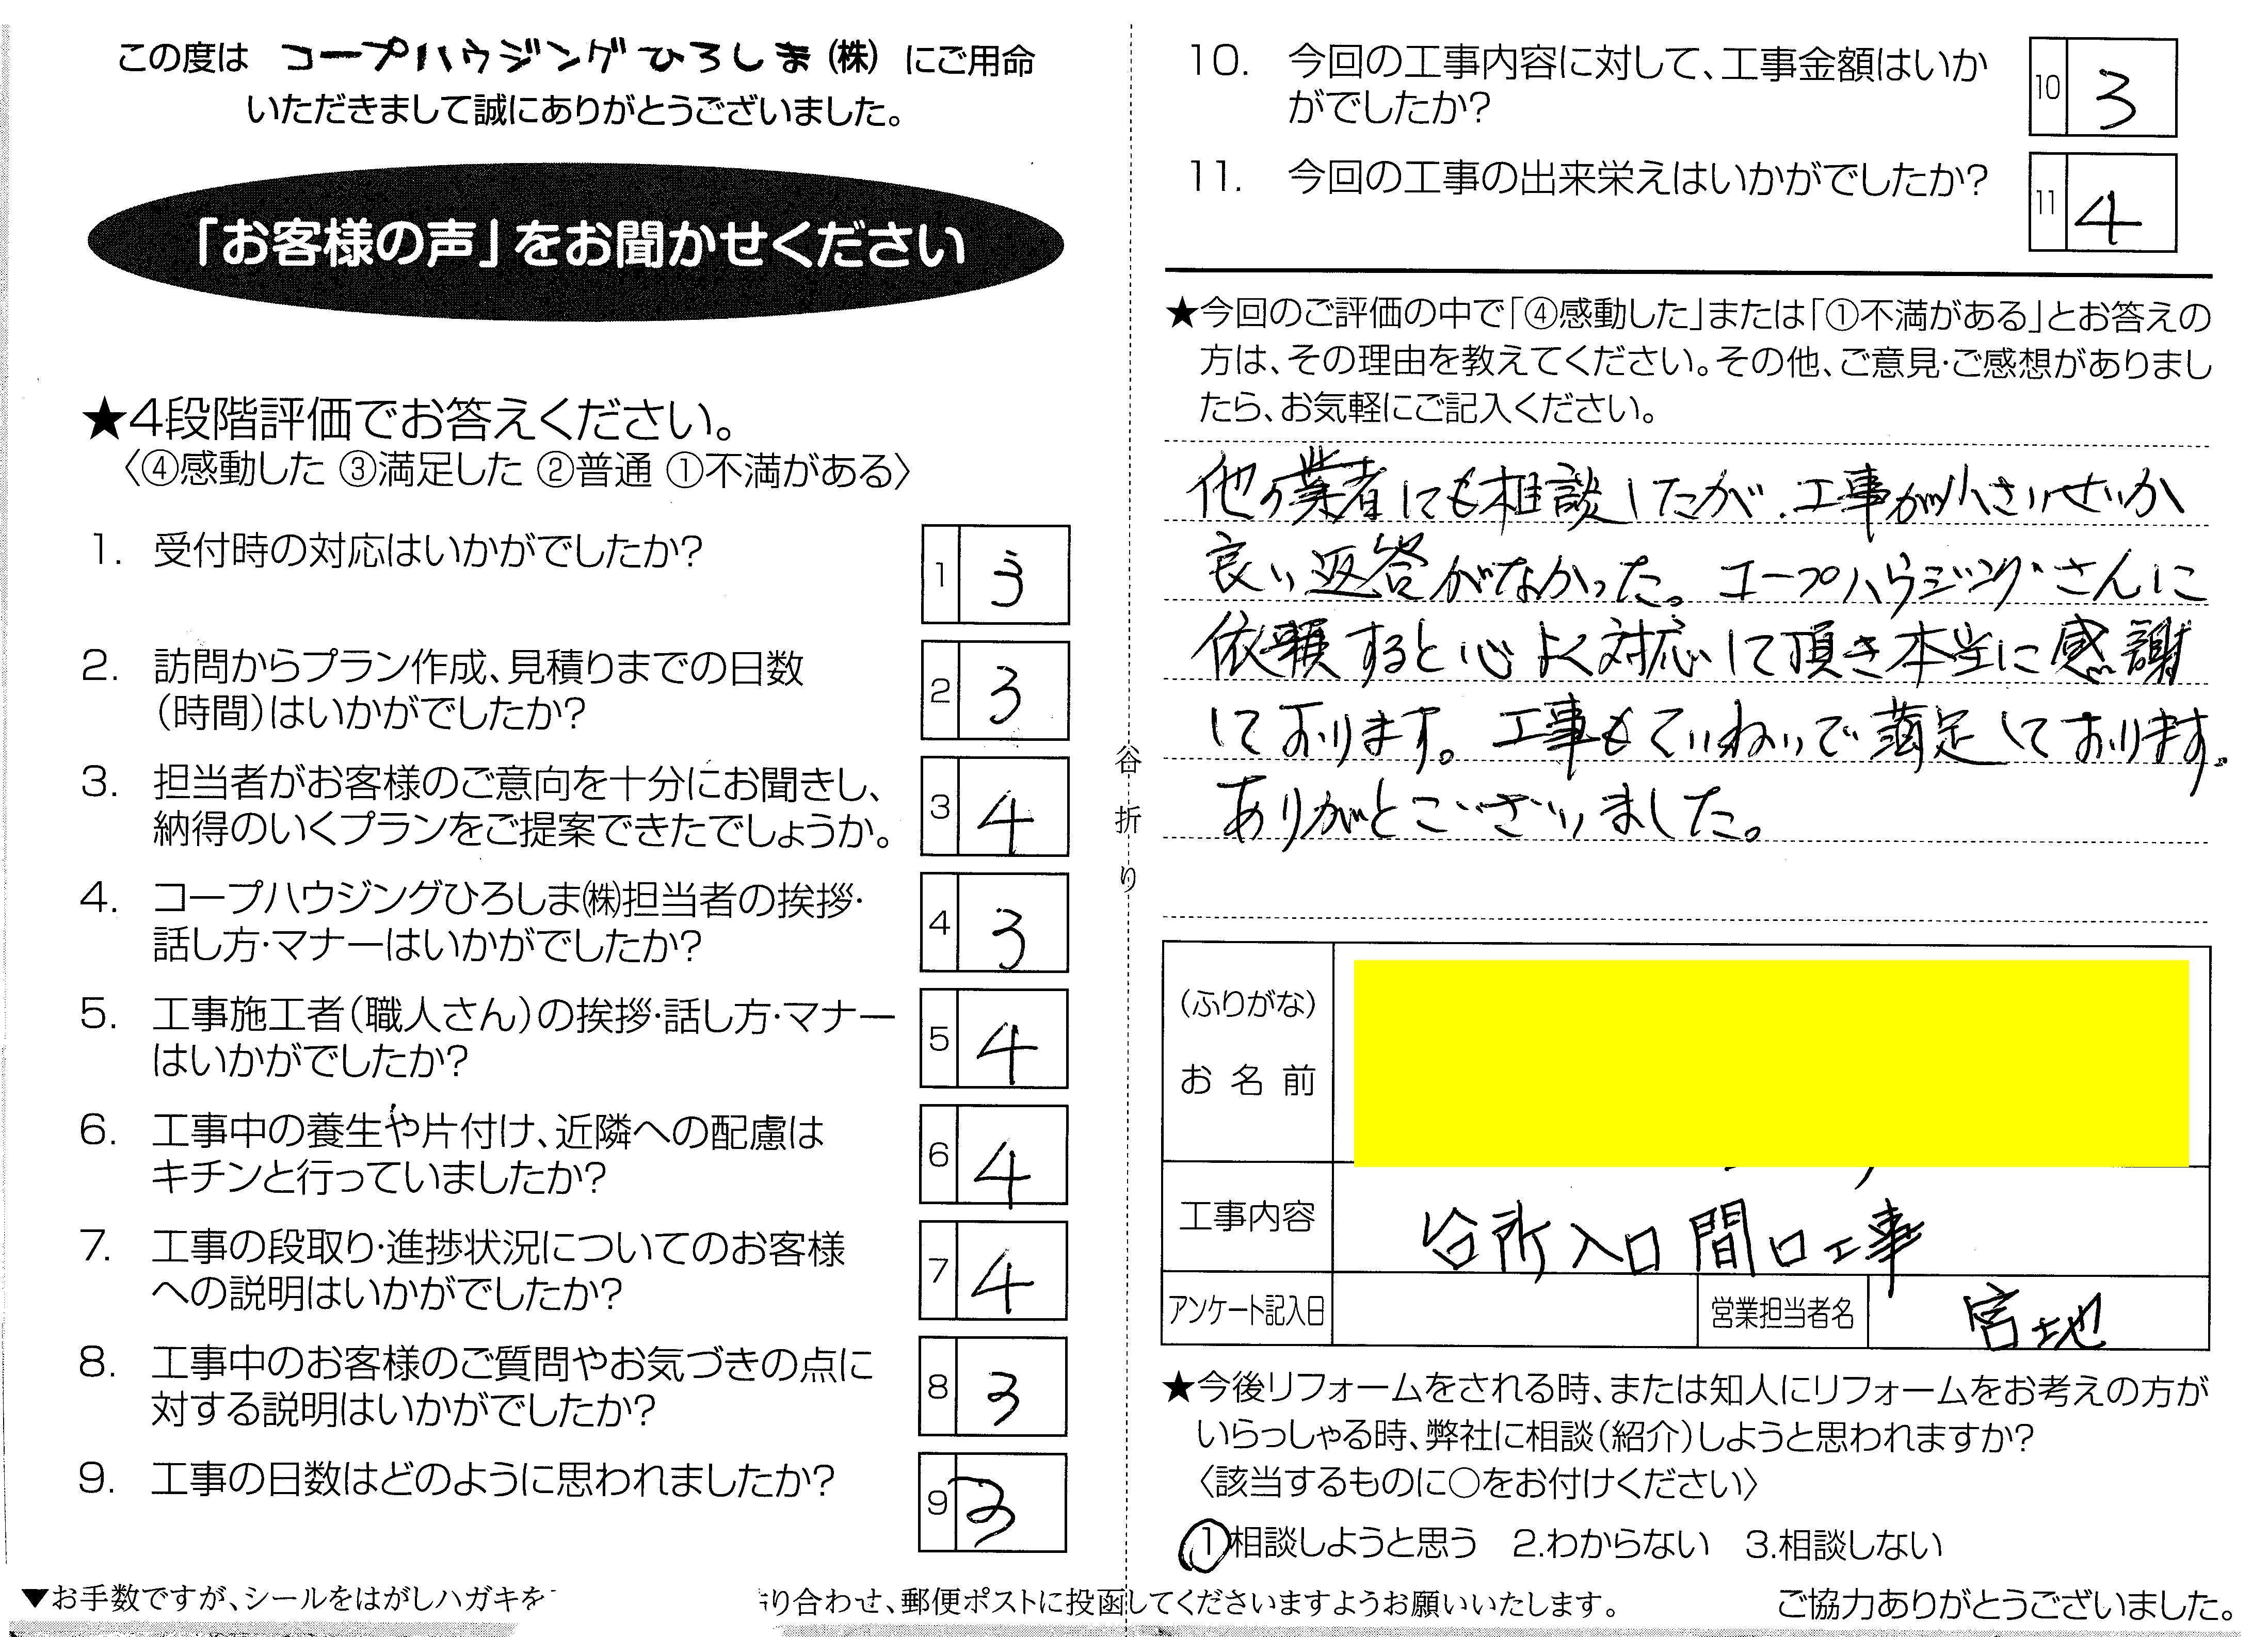 この度は コープハウジングひろしま(株) にご用命
いただきまして誠にありがとうございました。
「お客様の声」をお聞かせください
★4段階評価でお答えください。
〈④感動した ③満足した ②普通 ①不満がある〉
1. 受付時の対応はいかがでしたか? 1 3
2. 訪問からプラン作成、見積りまでの日数
(時間)はいかがでしたか? 2 3
3. 担当者がお客様のご意向を十分にお聞きし、
納得のいくプランをご提案できたでしょうか。 3 4
4. コープハウジングひろしま㈱担当者の挨拶・
話し方・マナーはいかがでしたか? 4 3
5. 工事施工者(職人さん)の挨拶・話し方・マナー
はいかがでしたか? 5 4
6. 工事中の養生や片付け、近隣への配慮は
キチンと行っていましたか? 6 4
7. 工事の段取り・進捗状況についてのお客様
への説明はいかがでしたか? 7 4
8. 工事中のお客様のご質問やお気づきの点に
対する説明はいかがでしたか? 8 3
9. 工事の日数はどのように思われましたか? 9 3
▼お手数ですが、シールをはがしハガキを り合わせ、郵便ポストに投函してくださいますようお願いいたします。
谷折り
10. 今回の工事内容に対して、工事金額はいか
がでしたか? 10 3
11. 今回の工事の出来栄えはいかがでしたか? 11 4
★今回のご評価の中で「④感動した」または「①不満がある」とお答えの
方は、その理由を教えてください。その他、ご意見・ご感想がありまし
たら、お気軽にご記入ください。
他の業者にも相談したが、工事が小さいせいか
良い返答がなかった。コープハウジングさんに
依頼すると心よく対応して頂き本当に感謝
しております。工事もていねいで満足しております。
ありがとございました。
(ふりがな)
お名前
工事内容 台所入口間口工事
アンケート記入日 営業担当者名 宮地
★今後リフォームをされる時、または知人にリフォームをお考えの方が
いらっしゃる時、弊社に相談(紹介)しようと思われますか?
〈該当するものに○をお付けください〉
1 相談しようと思う 2.わからない 3.相談しない
ご協力ありがとうございました。